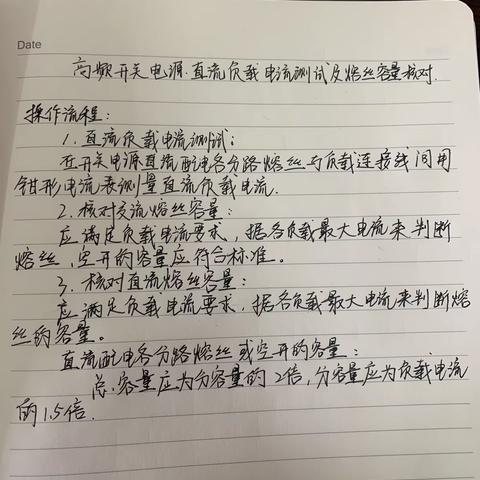 Date
高频开关电源.直流负载电流测试及熔丝容量核对.
操作流程：
1. 直流负载电流测试；
在开关电源直流配电各分路熔丝与负载连接线间用
钳形电流表测量直流负载电流.
2. 核对交流熔丝容量：
应满足负载电流要求，据各负载最大电流来判断
熔丝、空开的容量应符合标准。
3. 核对直流熔丝容量：
应满足负载电流要求，据各负载最大电流来判断熔
丝的容量。
直流配电各分路熔丝或空开的容量：
总容量应为分容量的2倍，分容量应为负载电流
的1.5倍.